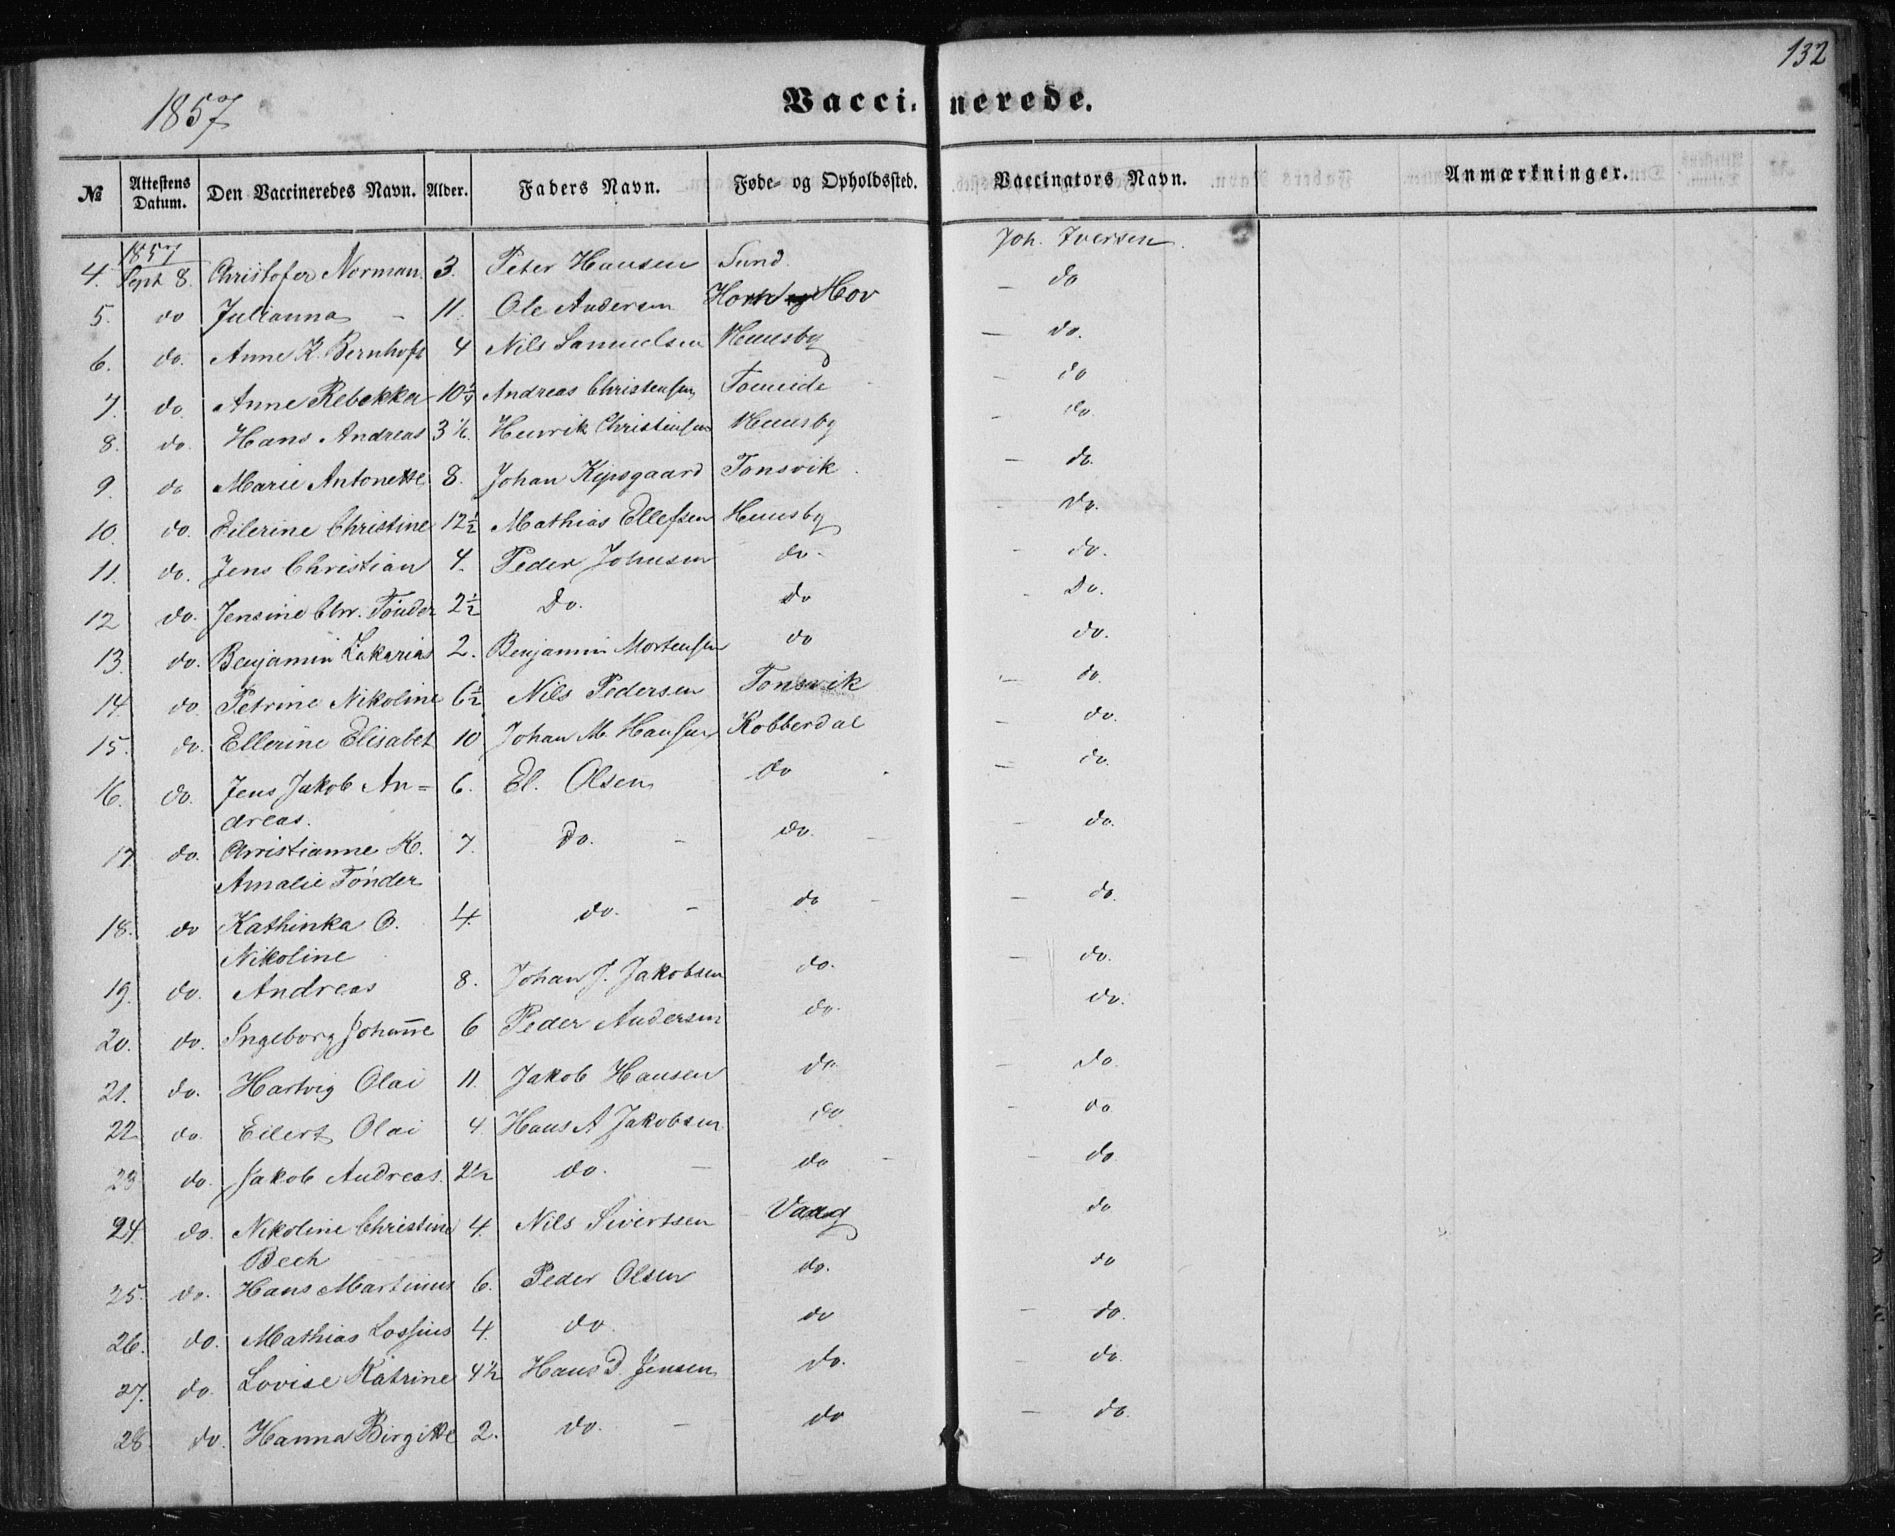 132
1857
Vaccinerede.
№ Attestens Datum. Den Vaccineredes Navn. Alder. Faders Navn. Føde- og Opholdssted. Vaccinators Navn. Anmærkninger.
1857
4. Sept 8. Christofer Norman. 3. Peter Hansen Sund. Joh. Iversen.
5. do Julianna - 11. Ole Andersen Hov - do
6. do. Anne K. Bernhoft 4 Nils Samuelsen Huusby - do.
7. do. Anne Rebekka 10½ Andreas Christensen - do
8. do. Hans Andreas 3½. Henrik Christensen Huusby - do.
9. do Marie Antonette 8. Johan Kipsgaard Tonsvik - do.
10. do. Eilerine Christine 12½ Mathias Ellefsen Huusby Do.
11. do. Jens Christian 4. Peder Johnsen do. - do.
12 do. Jensine Chr. Tönder 2½ Do. Do - Do.
13. do. Benjamin Zakarias 2. Benjamin Mortensen do do.
14. do. Petrine Nikoline 6½ Nils Pedersen Tonsvik - do.
15. do. Ellerine Elisabet 10 Johan M. Hansen Kobberdal - do.
16. do. Jens Jakob An= 6. El. Olsen do - do.
dreas.
17. do. Christianne K. 7. Do. - do. - - do.
Amalie Tönder
18. do Kathinka O. 4. do. - do - - do.
Nikoline
19. do. Andreas 8. Johan J. Jakobsen do. - do.
20. do. Ingeborg Johanne 6 Peder Andersen do. - do.
21. do. Hartvig Olai 11. Jakob Hansen do. - do.
22 do. Eilert Olai 4. Hans A Jakobsen do - do
23 do. Jakob Andreas. 2½ do. - do - - do
24. do. Nikoline Christine 4. Nils Sivertsen Vaag do
Bech
25. do. Hans Martinus 6. Peder Olsen do. do
26. do. Mathias Lossius 4. do do - do.
27. do. Lovise Katrine 4½ Hans D. Jensen do. - do.
28. do. Hanna Birgitte 2. do. - do - do.